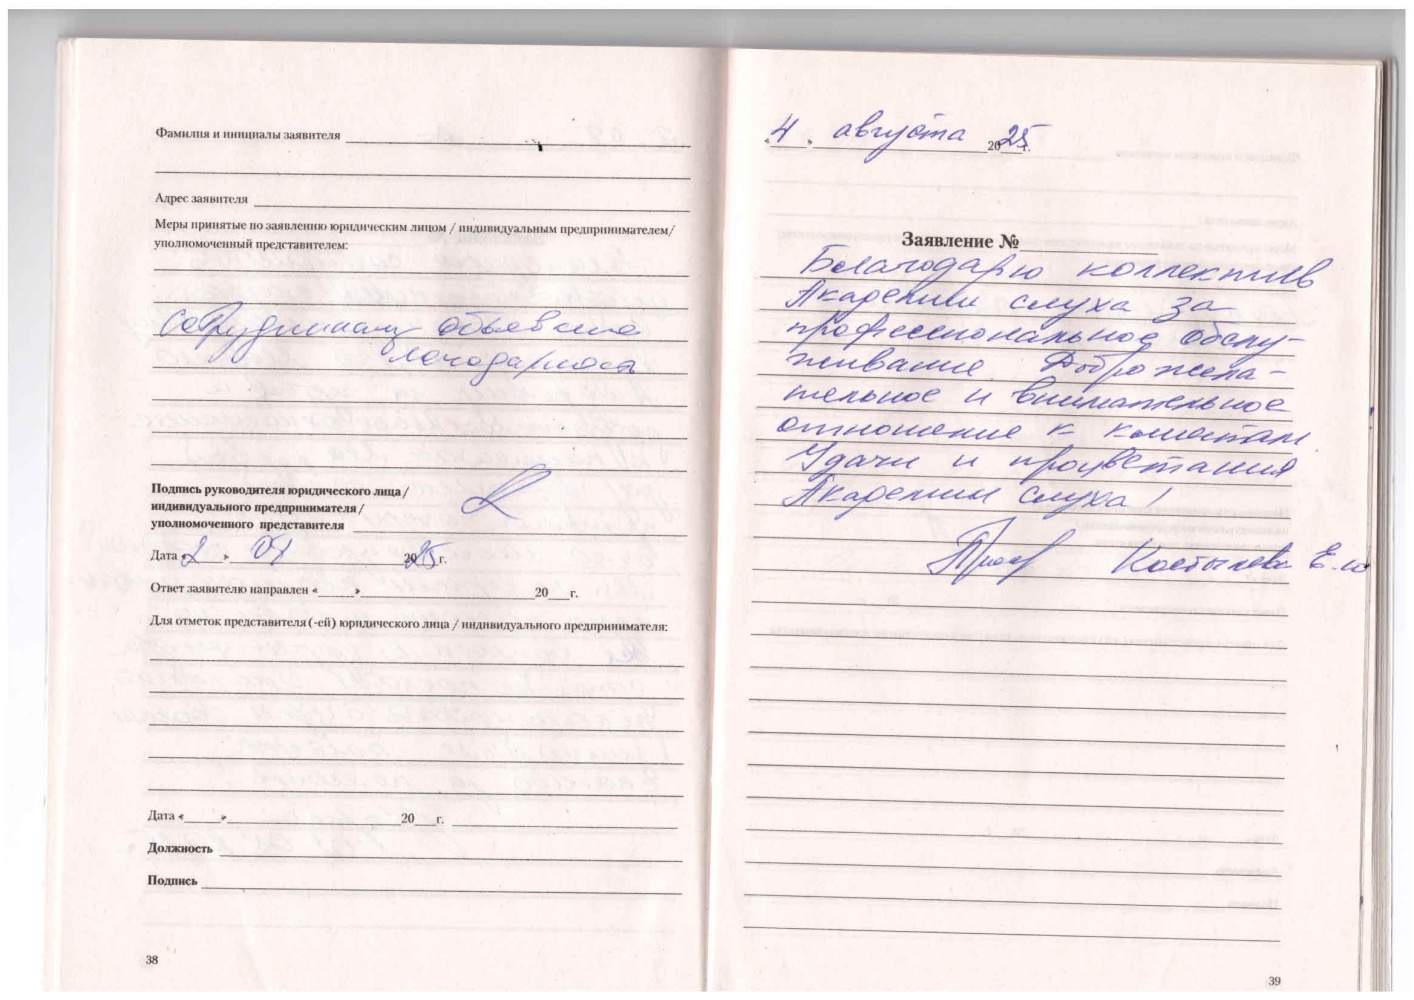 Фамилия и инициалы заявителя
Адрес заявителя
Меры принятые по заявлению юридическим лицом / индивидуальным предпринимателем/
уполномоченный представителем:
Сотрудникам объявлена
благодарность
Подпись руководителя юридического лица /
индивидуального предпринимателя /
уполномоченного представителя
Дата «2» 2025г.
Ответ заявителю направлен «___»___20___г.
Для отметок представителя (-ей) юридического лица / индивидуального предпринимателя:
Дата «___»___20___г.
Должность
Подпись
38
«4» августа 2025г.
Заявление №
Благодарю коллектив
Академии слуха за
профессиональное обслу-
живание. Доброжела-
тельное и внимательное
отношение к клиентам
Удачи и процветания
Академии слуха!
Е.Ю
39